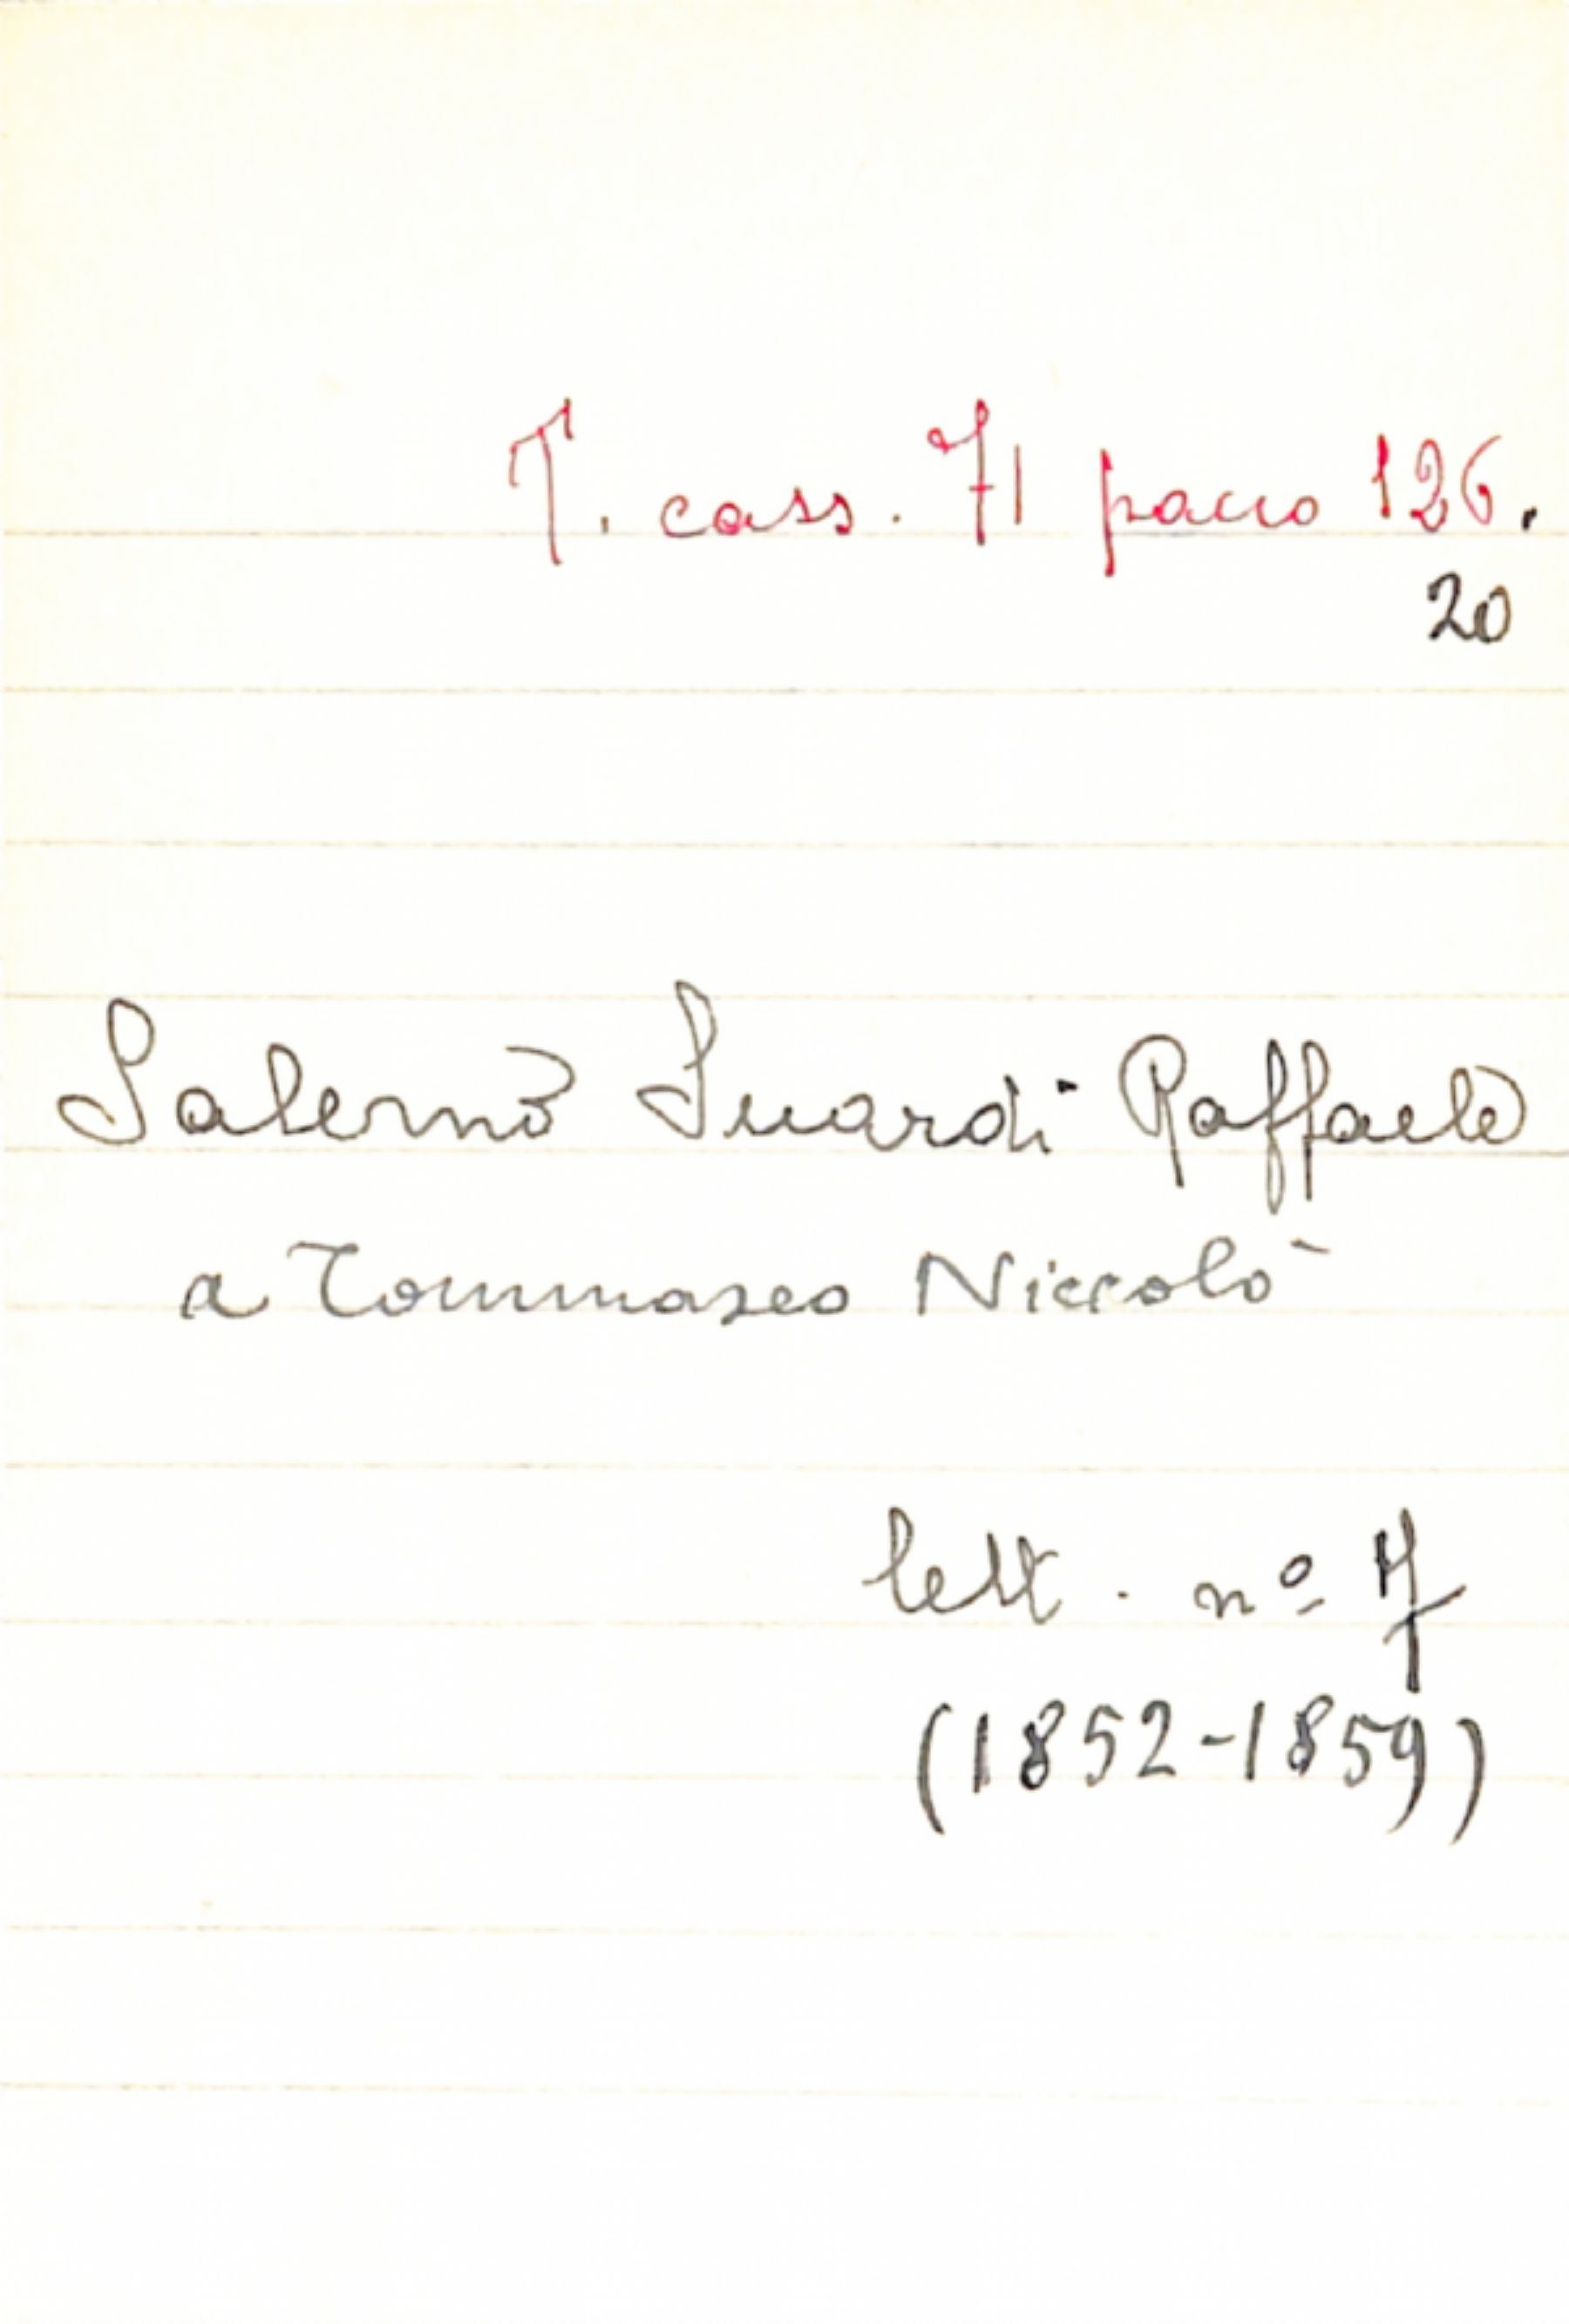 T. cass. 71 pacco 126.
20
Salerno Suardi Raffaele
a Tommaseo Niccolò
lett. nº 7
(1852-1859)